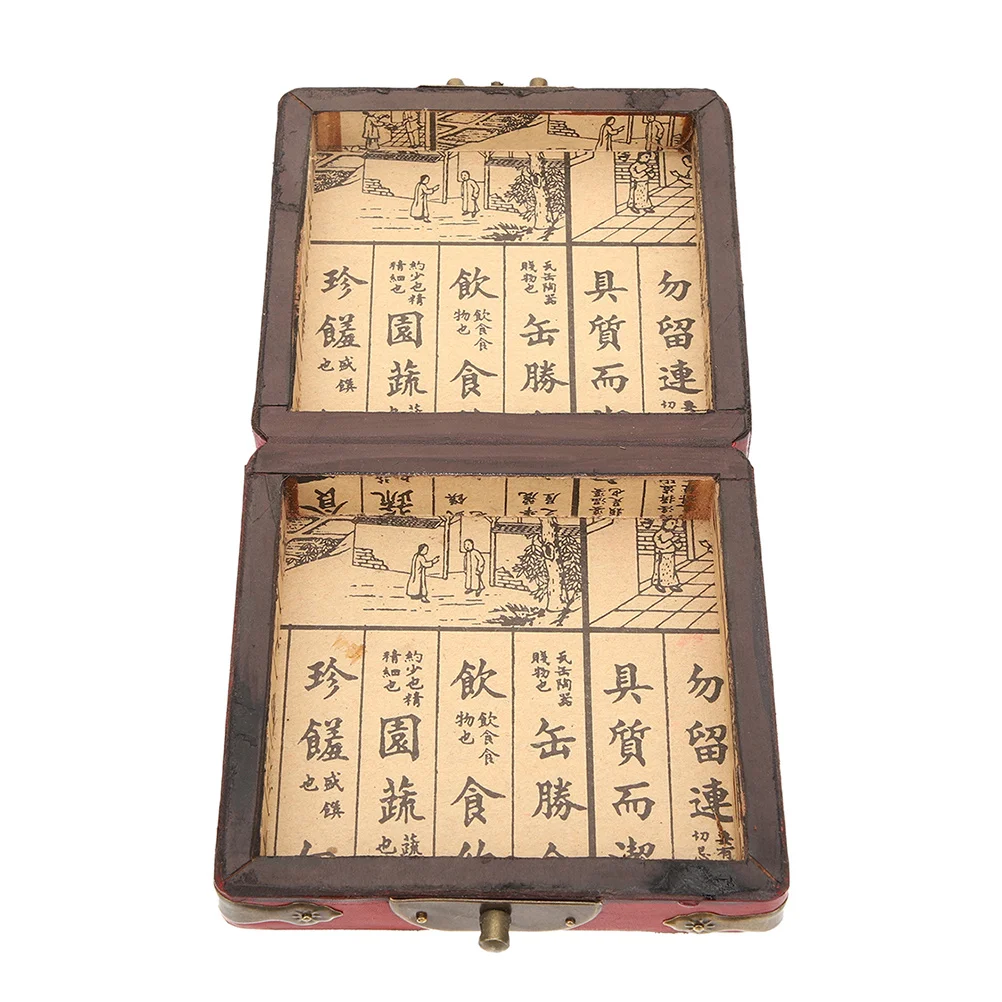 勿留連
切
具質而
瓦缶陶器
賤物也
缶勝
飲
飲食食
物也
食
約少也精
精細也
園蔬
珍饈
盛饌
也
食
蔬
勿留連
有
切忌
具質而潔
瓦缶陶器
賤物也
缶勝
飲
飲食食
物也
食
約少也精
精細也
園蔬
蔬
也
珍饈
盛饌
也